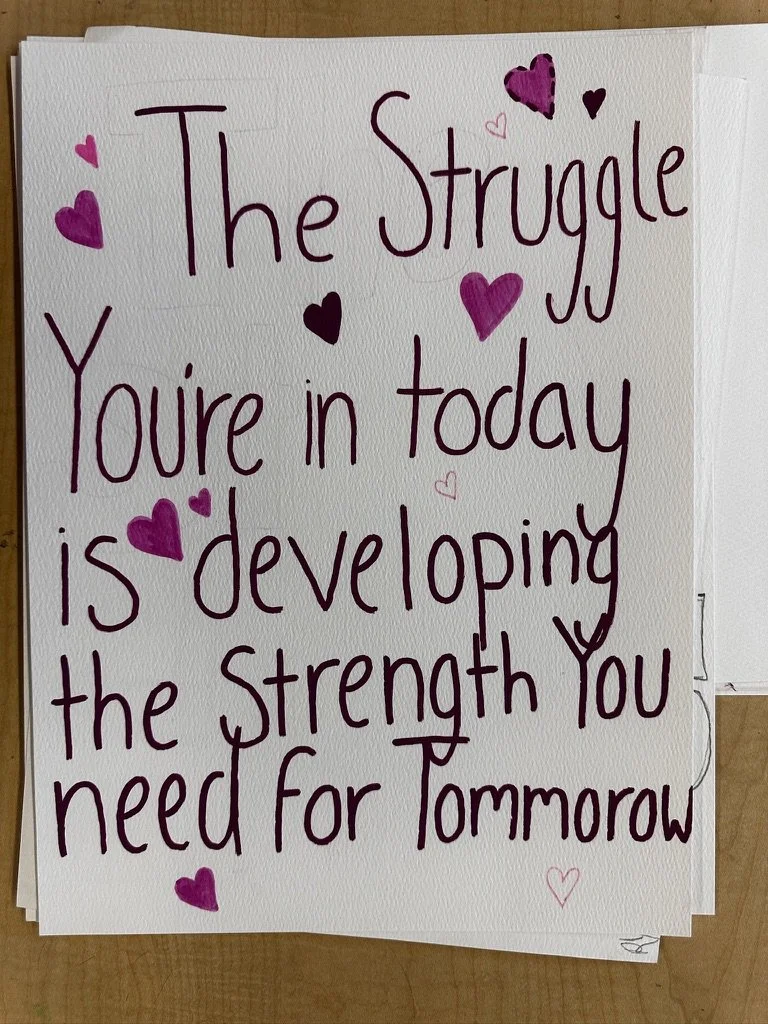 The Struggle
You're in today
is developing
the Strength You
need for Tommorow